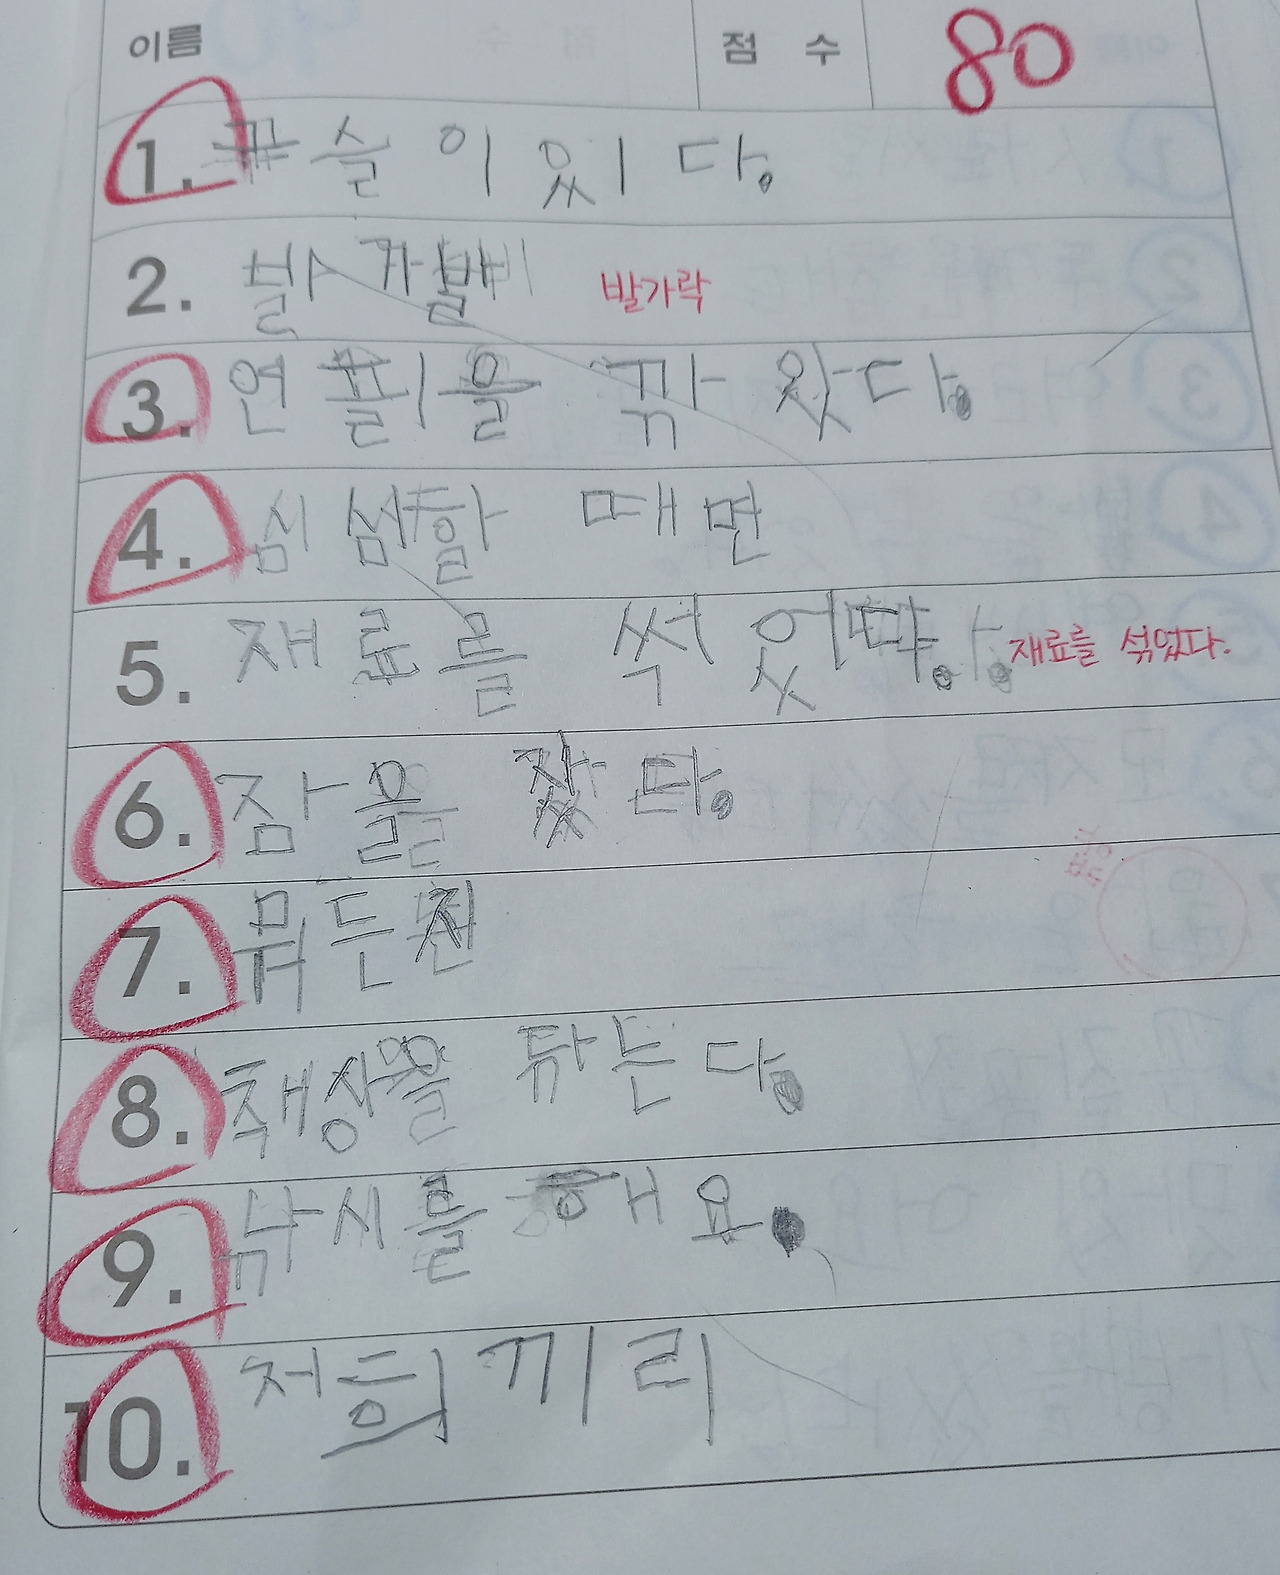 이름 점 수 80
1. 구슬이 있다.
2. 발가 발가락
3. 연필을 깎았다.
4. 심심할 때면
5. 재료를 썩었다. 재료를 섞었다.
6. 잠을 잤다.
7. 뭐든지
8. 책상을 닦는다.
9. 낚시를 해요.
10. 저희끼리